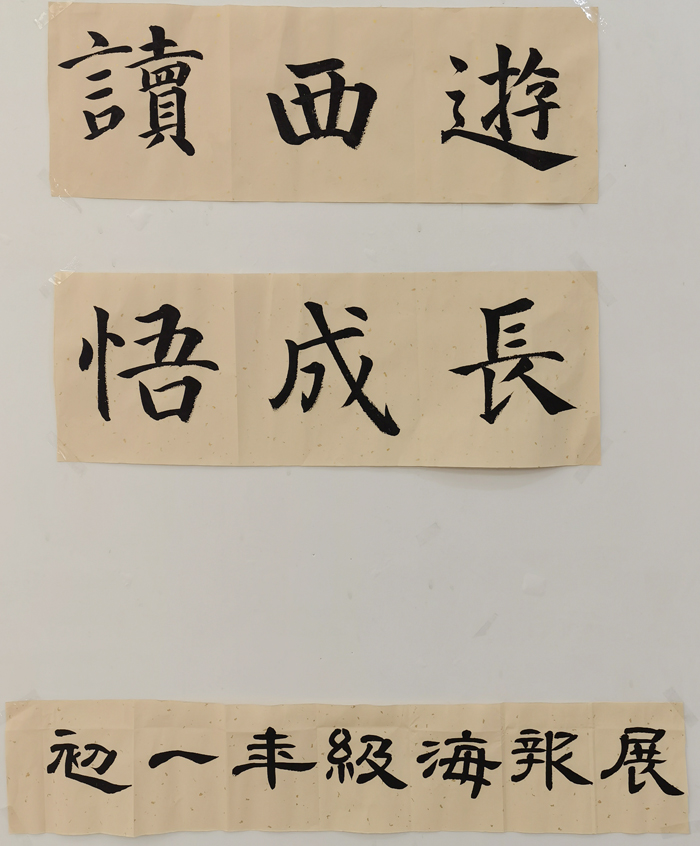 讀西遊
悟成長
初一年級海報展